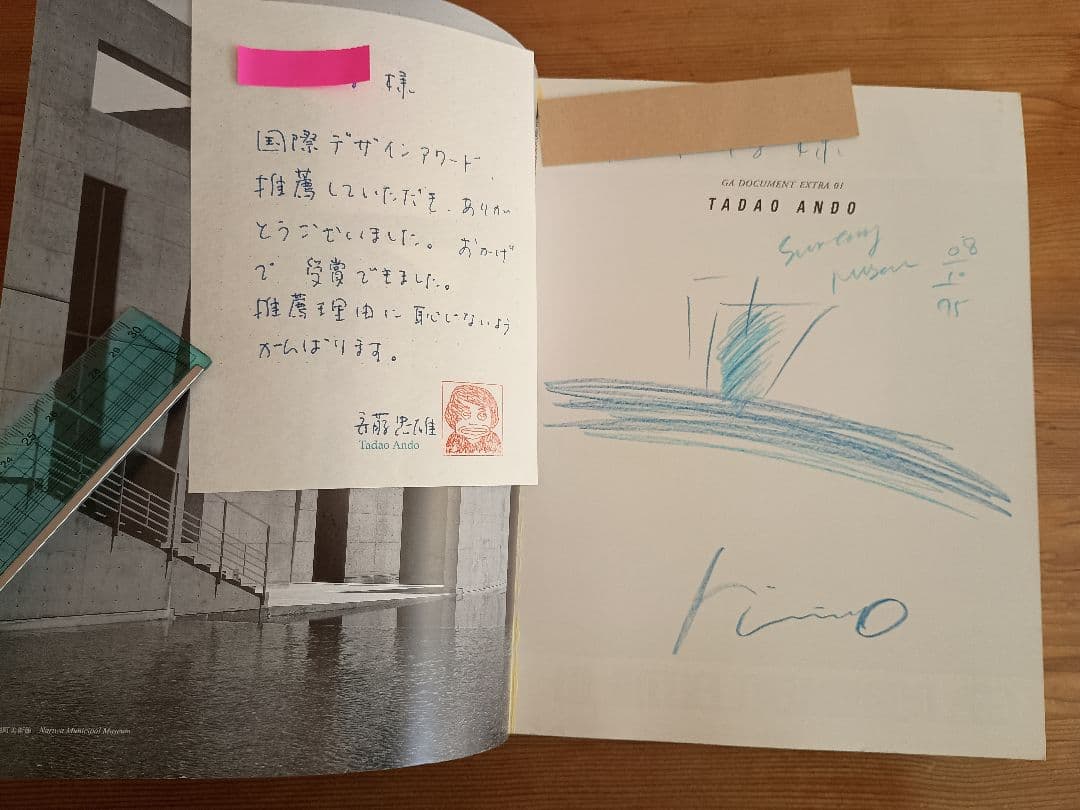 様
国際デザインアワード、
推薦していただき、ありが
とうございました。おかげ
で 受賞できました。
推薦理由に恥じないよう
がんばります。
安藤忠雄
Tadao Ando
30
29
28
27
26
25
24
町美術館 Nariwa Municipal Museum
GA DOCUMENT EXTRA 01
TADAO ANDO
08
10
95